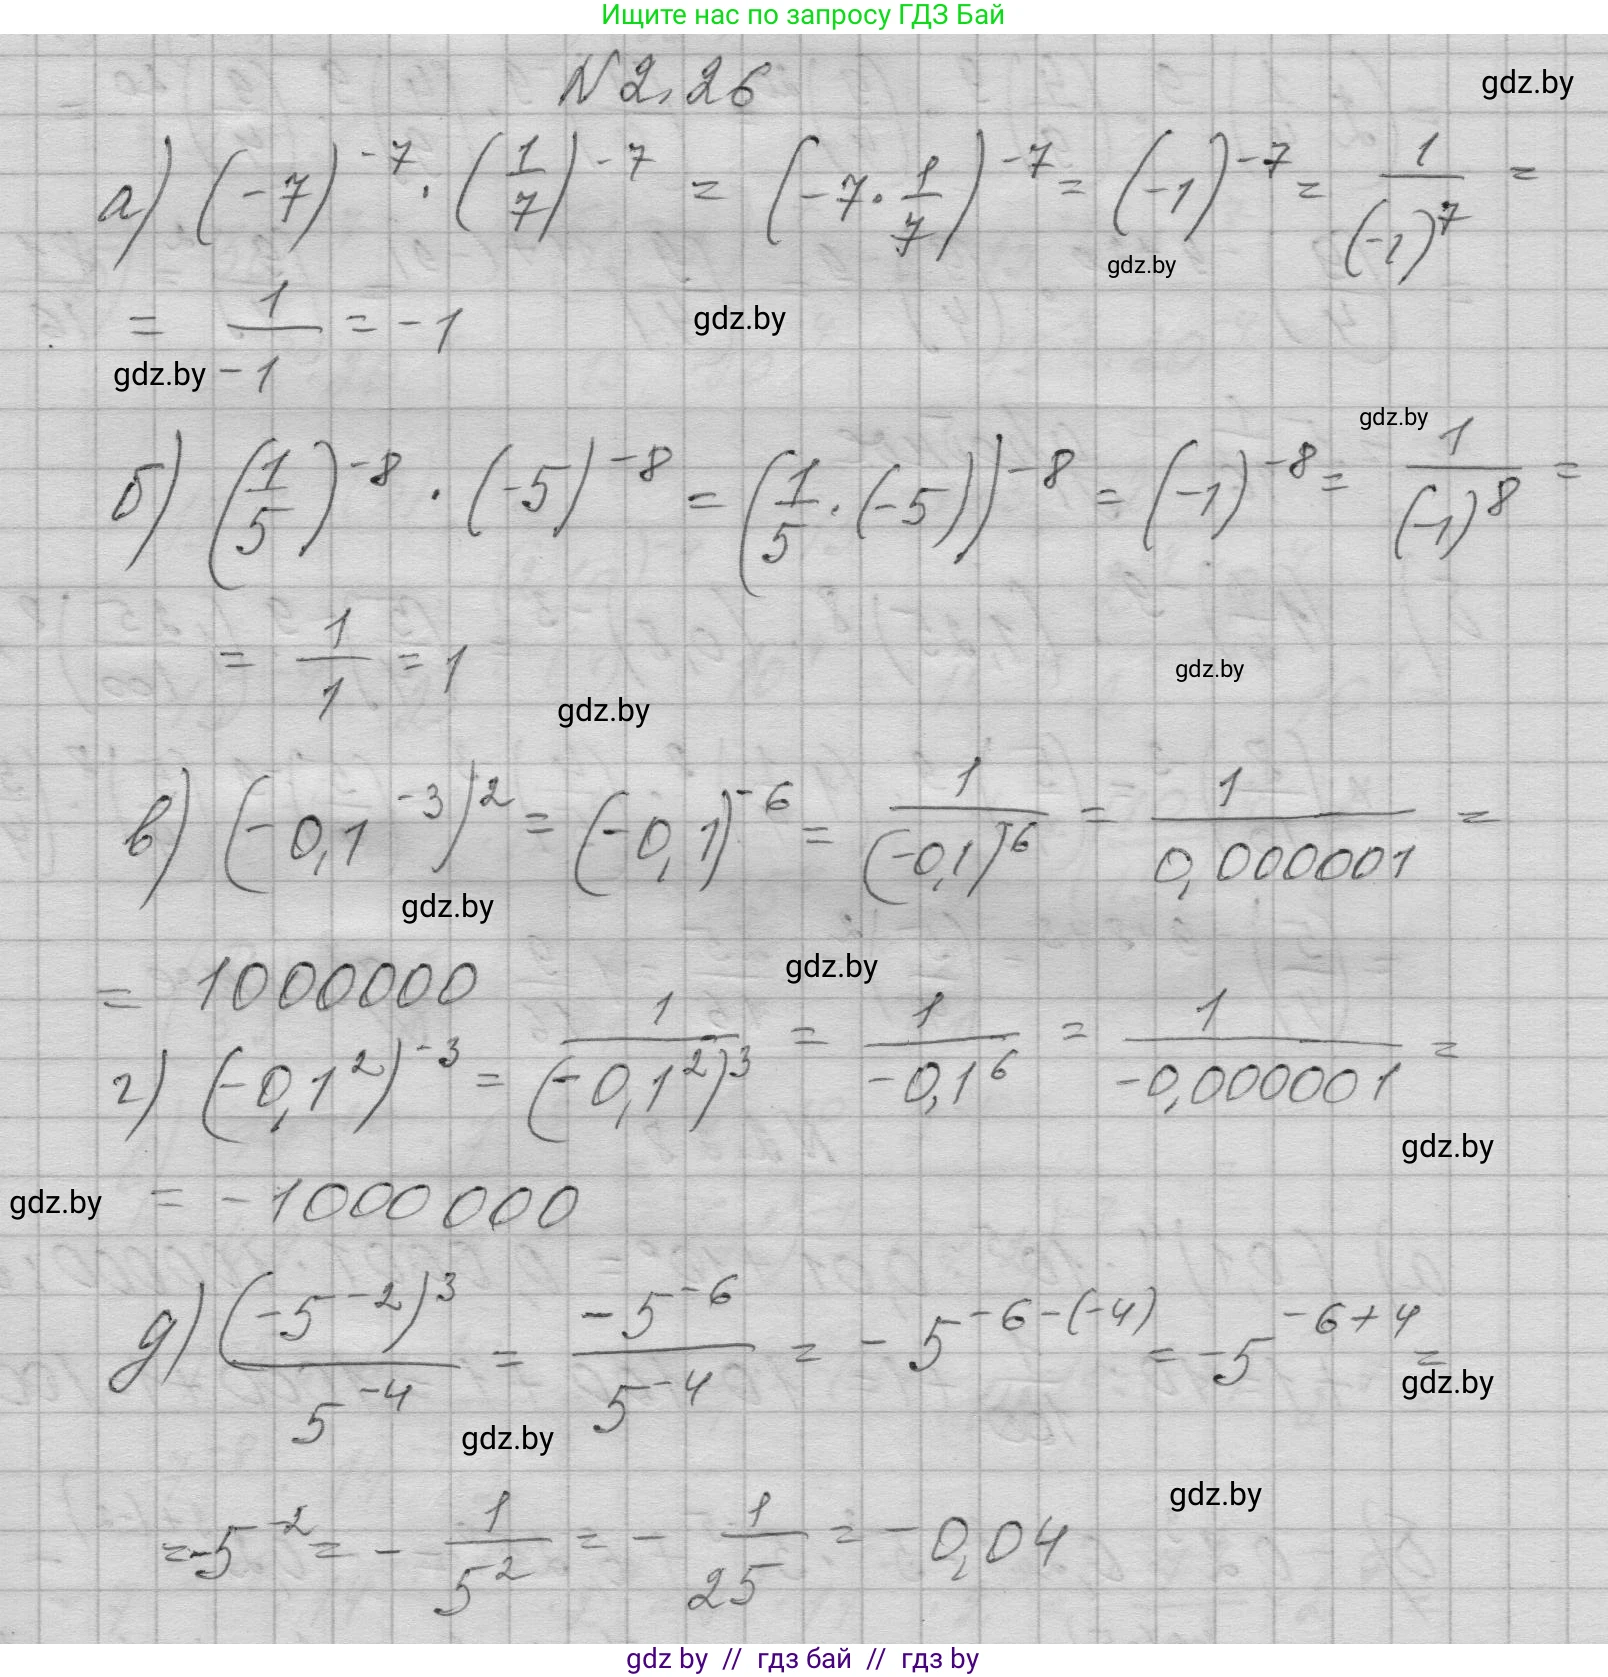 Ищите нас по запросу ГДЗ Бай
№ 2.26
gdz.by
а) (-7)^-7 · (1/7)^-7 = (-7 · 1/7)^-7 = (-1)^-7 = 1/(-1)^7 =
gdz.by
= 1/-1 = -1
gdz.by
gdz.by
gdz.by
б) (1/5)^-8 · (-5)^-8 = (1/5 · (-5))^-8 = (-1)^-8 = 1/(-1)^8 =
= 1/1 = 1
gdz.by
gdz.by
в) (-0,1^-3)^2 = (-0,1)^-6 = 1/(-0,1)^6 = 1/0,000001 =
gdz.by
= 1000000
gdz.by
г) (-0,1^2)^-3 = 1/(-0,1^2)^3 = 1/-0,1^6 = 1/-0,000001 =
gdz.by
gdz.by
= -1000000
д) (-5^-2)^3/5^-4 = -5^-6/5^-4 = -5^-6-(-4) = -5^-6+4 =
gdz.by
gdz.by
gdz.by
= -5^-2 = -1/5^2 = -1/25 = -0,04
gdz by // гдз бай // gdz by